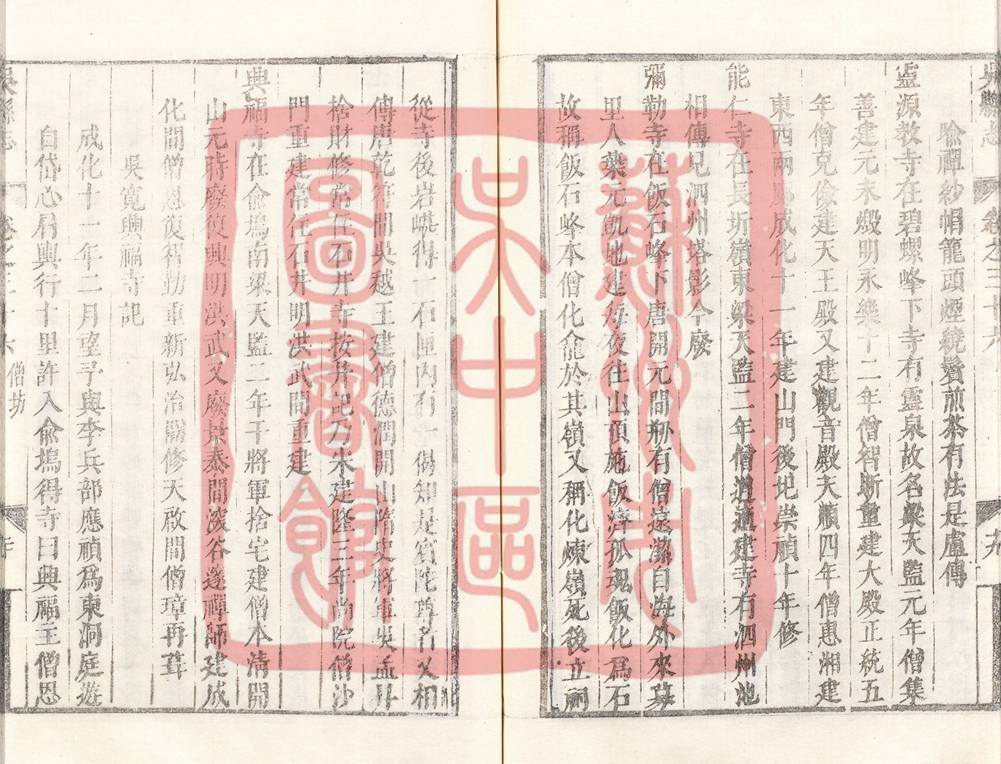 吳縣志 卷之三十六 十九
喻禪紗帽籠頭煙繞鬢煎茶有法是盧傳
靈源教寺在碧螺峰下寺有靈泉故名梁天監元年僧集
善建元末燬明永樂十二年僧智昕重建大殿正統五
年僧克儉建天王殿又建觀音殿天順四年僧惠湘建
東西兩廊成化十一年建山門後圯崇禎十年修
能仁寺在長圻嶺東梁天監二年僧道適建寺有泗州池
相傳見泗州塔影今廢
彌勒寺在飯石峰下唐開元間初有僧遠潔自海外來募
里人葉元凱地建每夜往山頂施飯濟孤魂飯化爲石
故稱飯石峰本僧化龕於其嶺又稱化煉嶺死後立祠
從寺後岩巇得一石匣內有一偈知是寶陀尊者又相
傳唐乾符間吳越王建僧德潤開山隋史將軍吳孟
捨財修常住石井寺按井記乃宋建隆三年尚院僧沙
門重建常住石井明洪武間重建
興福寺在俞塢南梁天監二年干將軍捨宅建僧本清開
山元時廢復興明洪武又廢景泰間濬谷遂禪師建成
化間僧恩復智勤重新弘治間修天啟間僧璋再葺
吳寬興福寺記
成化十一年二月望予與李兵部應禎爲東洞庭遊
自岱心肩輿行十里許入俞塢得寺曰興福主僧恩
吳縣志 卷之三十六 僧坊